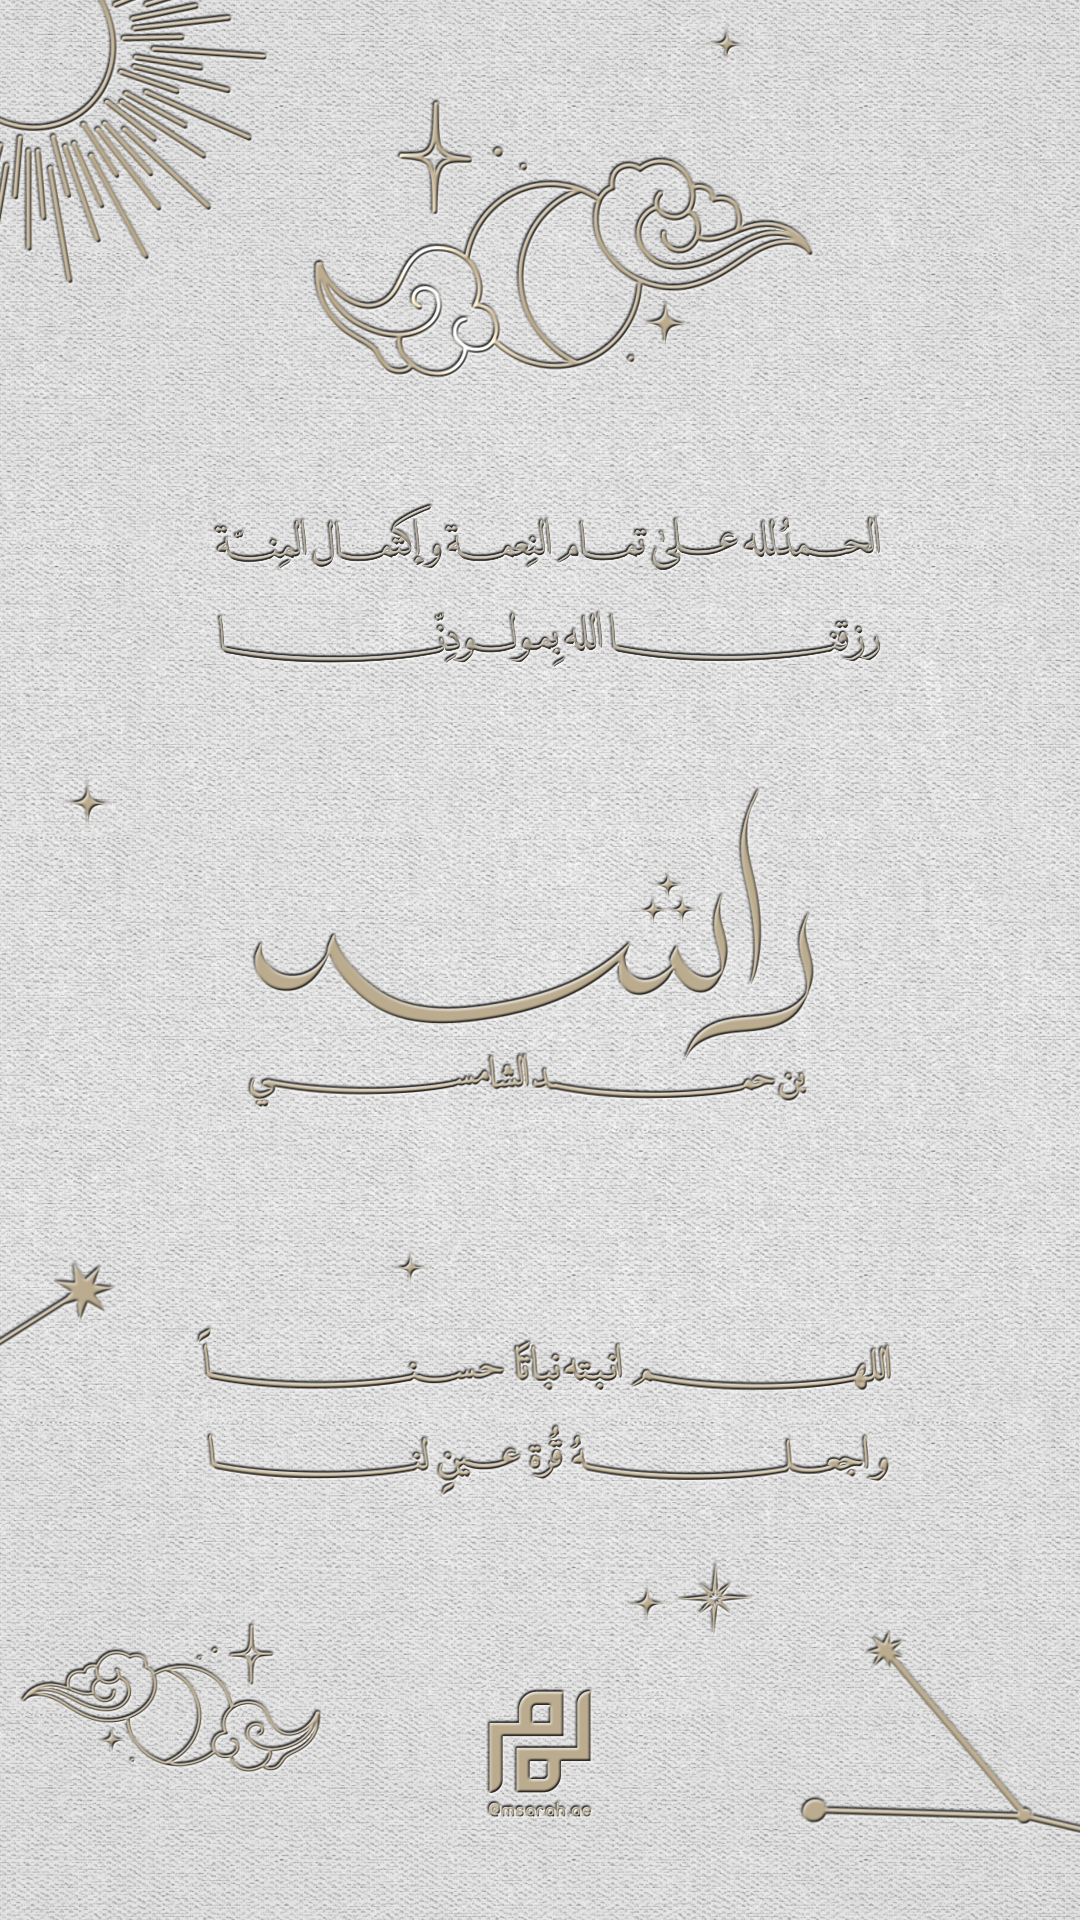 الحمدُلله علىٰ تمام النِعمة وإكتمال المِنّة
رزقنا الله بِمولودِنّا
راشد
بن حمد الشامسي
اللهم انبته نباتًا حسناً
واجعلهُ قُرة عينٍ لنا
@msarah.ae